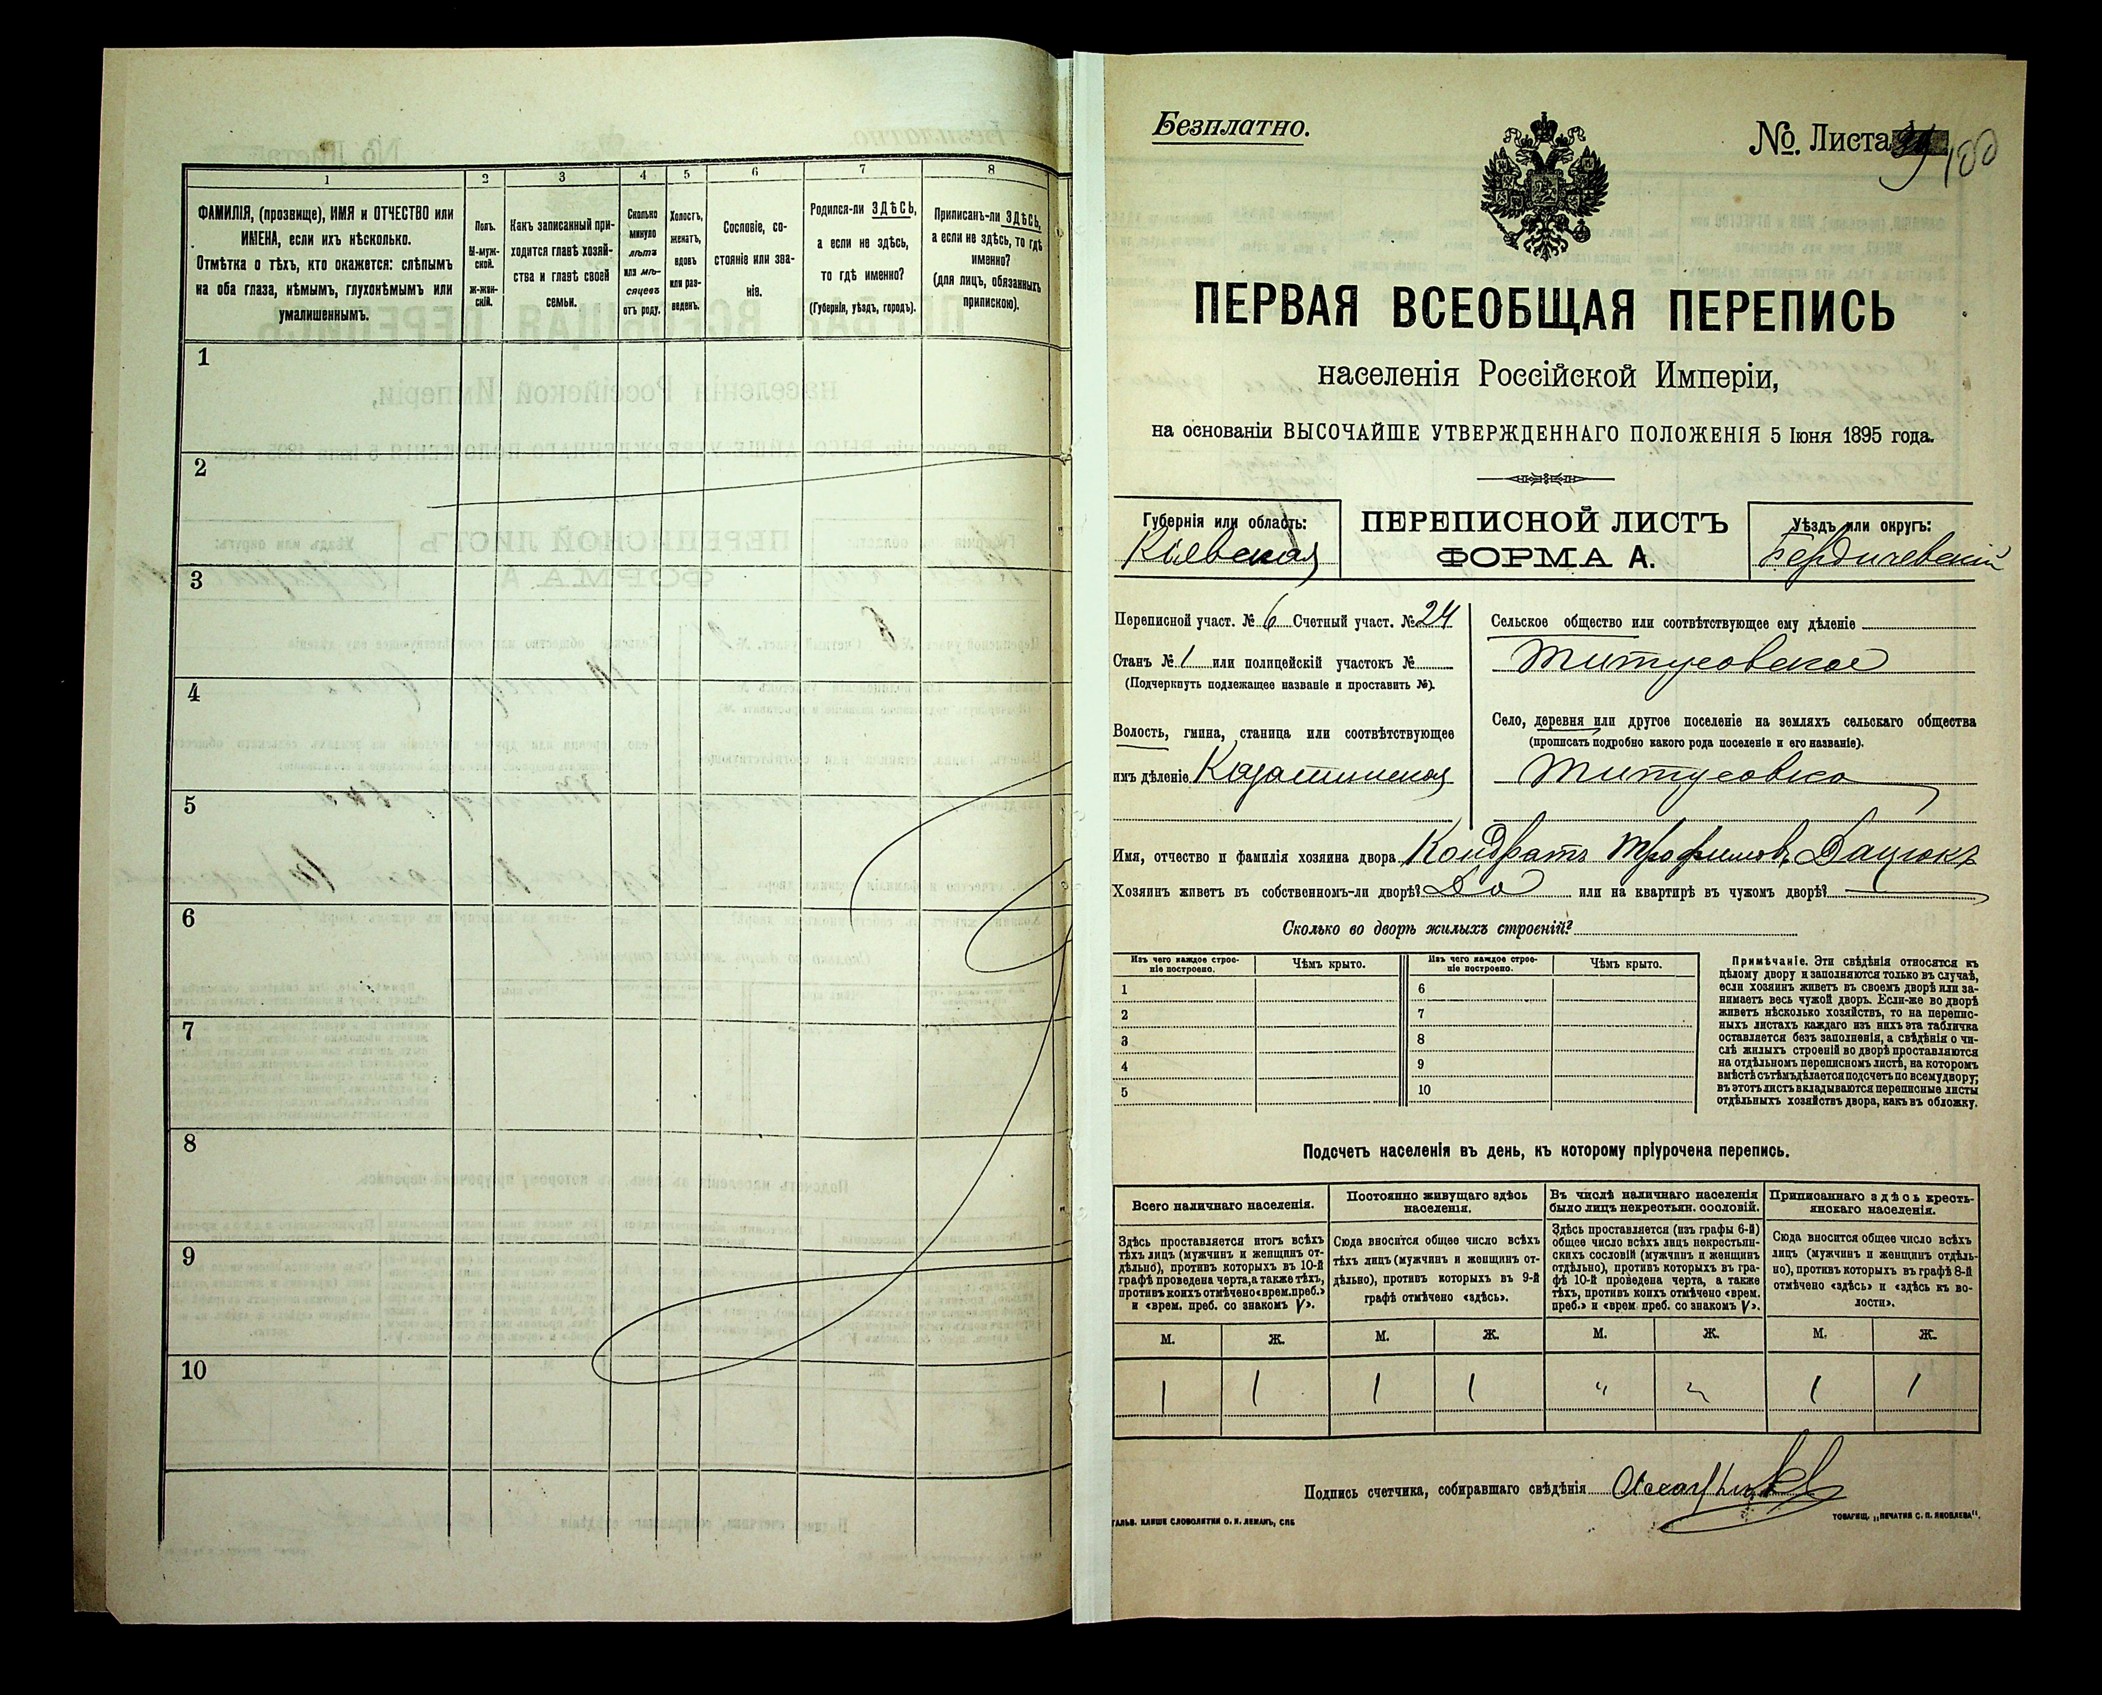 1
2
3
4
5
6
7
8
ФАМИЛІЯ, (прозвище), ИМЯ и ОТЧЕСТВО или
ИМЕНА, если ихъ нѣсколько.
Отмѣтка о тѣхъ, кто окажется: слѣпымъ
на оба глаза, нѣмымъ, глухонѣмымъ или
умалишеннымъ.
Полъ.
М-муж-
ской.
Ж-жен-
скій.
Какъ записанный при-
ходится главѣ хозяй-
ства и главѣ своей
семьи.
Сколько
минуло
лѣтъ
или мѣ-
сяцевъ
отъ роду.
Холостъ,
женатъ,
вдовъ
или раз-
веденъ.
Сословіе, со-
стояніе или зва-
ніе.
Родился-ли ЗДѢСЬ,
а если не здѣсь,
то гдѣ именно?
(Губернія, уѣздъ, городъ).
Приписанъ-ли ЗДѢСЬ,
а если не здѣсь, то гдѣ
именно?
(для лицъ, обязанныхъ
припискою).
1
2
3
4
5
6
7
8
9
10
Безплатно.
№. Листа 100
ПЕРВАЯ ВСЕОБЩАЯ ПЕРЕПИСЬ
населенія Россійской Имперіи,
на основаніи ВЫСОЧАЙШЕ УТВЕРЖДЕННАГО ПОЛОЖЕНІЯ 5 Іюня 1895 года.
Губернія или область:
Кіевская
ПЕРЕПИСНОЙ ЛИСТЪ
ФОРМА А.
Уѣздъ или округъ:
Бердичевскій
Переписной участ. № 6 Счетный участ. № 24
Станъ № 1 или полицейскій участокъ №
(Подчеркнуть подлежащее названіе и проставить №).
Волость, гмина, станица или соотвѣтствующее
имъ дѣленіе
Сельское общество или соотвѣтствующее ему дѣленіе
Титусовское
Село, деревня или другое поселеніе на земляхъ сельскаго общества
(прописать подробно какого рода поселеніе и его названіе).
Титусовка
Имя, отчество и фамилія хозяина двора Кондратъ Трофимовъ Дацюкъ
Хозяинъ живетъ въ собственномъ-ли дворѣ? Да или на квартирѣ въ чужомъ дворѣ?
Сколько во дворѣ жилыхъ строеній?
Изъ чего каждое строе-
ніе построено.
Чѣмъ крыто.
Изъ чего каждое строе-
ніе построено.
Чѣмъ крыто.
1 6
2 7
3 8
4 9
5 10
Примѣчаніе. Эти свѣдѣнія относятся къ
цѣлому двору и заполняются только въ случаѣ,
если хозяинъ живетъ въ своемъ дворѣ или за-
нимаетъ весь чужой дворъ. Если-же во дворѣ
живетъ нѣсколько хозяйствъ, то на перепис-
ныхъ листахъ каждаго изъ нихъ эта табличка
оставляется безъ заполненія, а свѣдѣнія о чи-
слѣ жилыхъ строеній во дворѣ проставляются
на отдѣльномъ переписномъ листѣ, на которомъ
вмѣстѣ съ тѣмъ дѣлается подсчетъ по всему двору;
въ этотъ листъ вкладываются переписные листы
отдѣльныхъ хозяйствъ двора, какъ въ обложку.
Подсчетъ населенія въ день, къ которому пріурочена перепись.
Всего наличнаго населенія.
Здѣсь проставляется итогъ всѣхъ
тѣхъ лицъ (мужчинъ и женщинъ от-
дѣльно), противъ которыхъ въ 10-й
графѣ проведена черта, а также тѣхъ,
противъ коихъ отмѣчено «врем. преб.»
и «врем. преб. со знакомъ V».
Постоянно живущаго здѣсь
населенія.
Сюда вносится общее число всѣхъ
тѣхъ лицъ (мужчинъ и женщинъ от-
дѣльно), противъ которыхъ въ 9-й
графѣ отмѣчено «здѣсь».
Въ числѣ наличнаго населенія
было лицъ некрестьян. сословій.
Здѣсь проставляется (изъ графы 6-й)
общее число всѣхъ лицъ некрестьян-
скихъ сословій (мужчинъ и женщинъ
отдѣльно), противъ которыхъ въ гра-
фѣ 10-й проведена черта, а также
тѣхъ, противъ коихъ отмѣчено «врем.
преб.» и «врем. преб. со знакомъ V».
Приписаннаго здѣсь кресть-
янскаго населенія.
Сюда вносится общее число всѣхъ
лицъ (мужчинъ и женщинъ отдѣль-
но), противъ которыхъ въ графѣ 8-й
отмѣчено «здѣсь» и «здѣсь къ во-
лости».
М. Ж. М. Ж. М. Ж. М. Ж.
1 1 1 1 " " 1 1
Подпись счетчика, собиравшаго свѣдѣнія
ГАЛЬВ. КЛИШЕ СЛОВОЛИТНИ О. И. ЛЕМАНЪ, СПБ
ТОВАРИЩ. „ПЕЧАТНЯ С. П. ЯКОВЛЕВА".